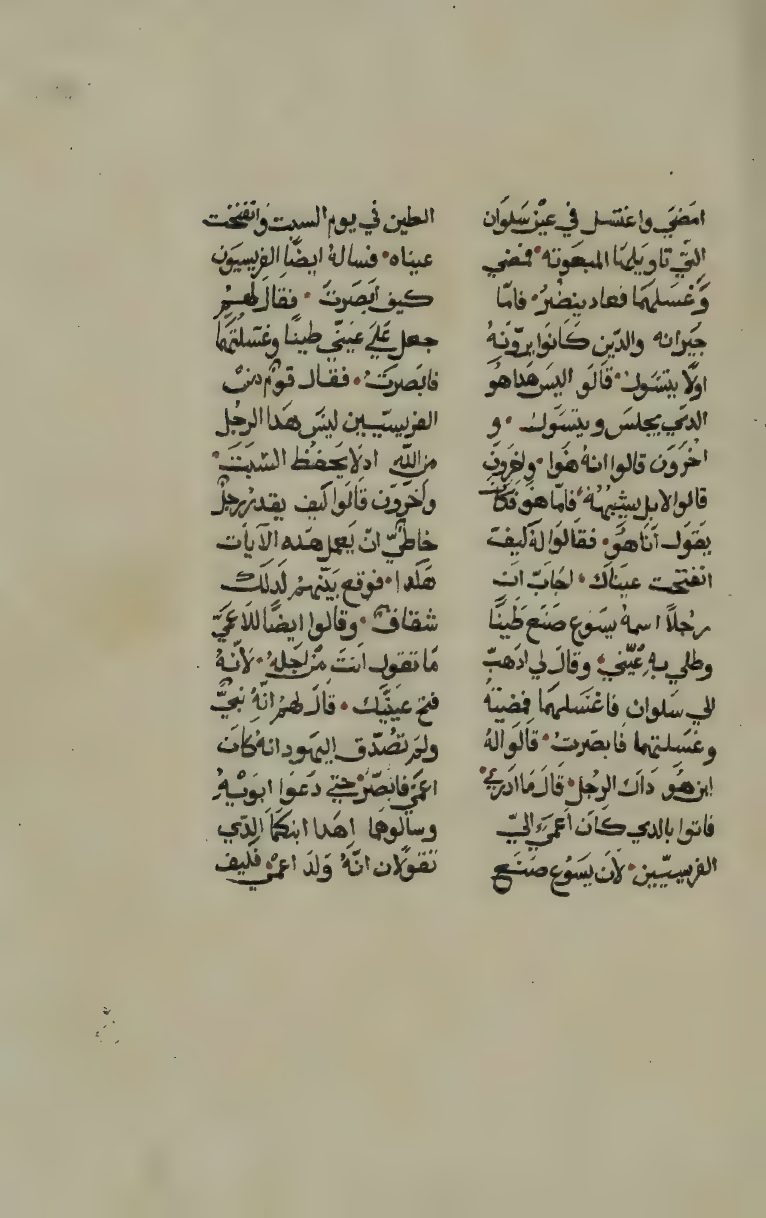 امضي واغتسل في عين سلوان
التي تاويلها المبعوته فمضي
وغسلهما فعاد ينضر فامّا
جيرانه والدين كانوا يرونه
اولًا يتسول قالو اليس هدا هو
الدي يجلس ويتسول و
اخرون قالوا انه هوا واخرون
قالوا لا بل يشبهه فامّا هو فكان
يقول انا هو فقالوا له كيف
انفتحت عيناك اجاب ان
رجلًا اسمه يسوع صنع طينًا
وطلي به عينّي وقال لي ادهب
الي سلوان فاغتسلهما فمضيت
وغسلتهما فابصرت قالوا له
اين هو داك الرجل قال ما ادري
فاتوا بالدي كان اعمي الي
الفريسيّين لان يسوع صنع
الطين في يوم السبت وانفتحت
عيناه فساله ايضًا الفريسيون
كيف ابصرت فقال لهم
جعل علي عينّي طينًا وغسلتهما
فابصرت فقال قوم من
الفريسيّين ليس هدا الرجل
من الله اد لا يحفظ السبت
واخرون قالوا كيف يقدر رجل
خاطيّ ان يعمل هده الايات
هكدا فوقع بينهم لدلك
شقاق وقالوا ايضًا للاعمي
ما تقول انت من اجله لانه
فتح عينيك قال لهم انّه نبيّ
ولم تصدّق اليهود انه كان
اعمي فابصر حتي دعوا ابويه
وسالوهما اهدا ابنكما الدي
تقولان انّه ولد اعمي فكيف